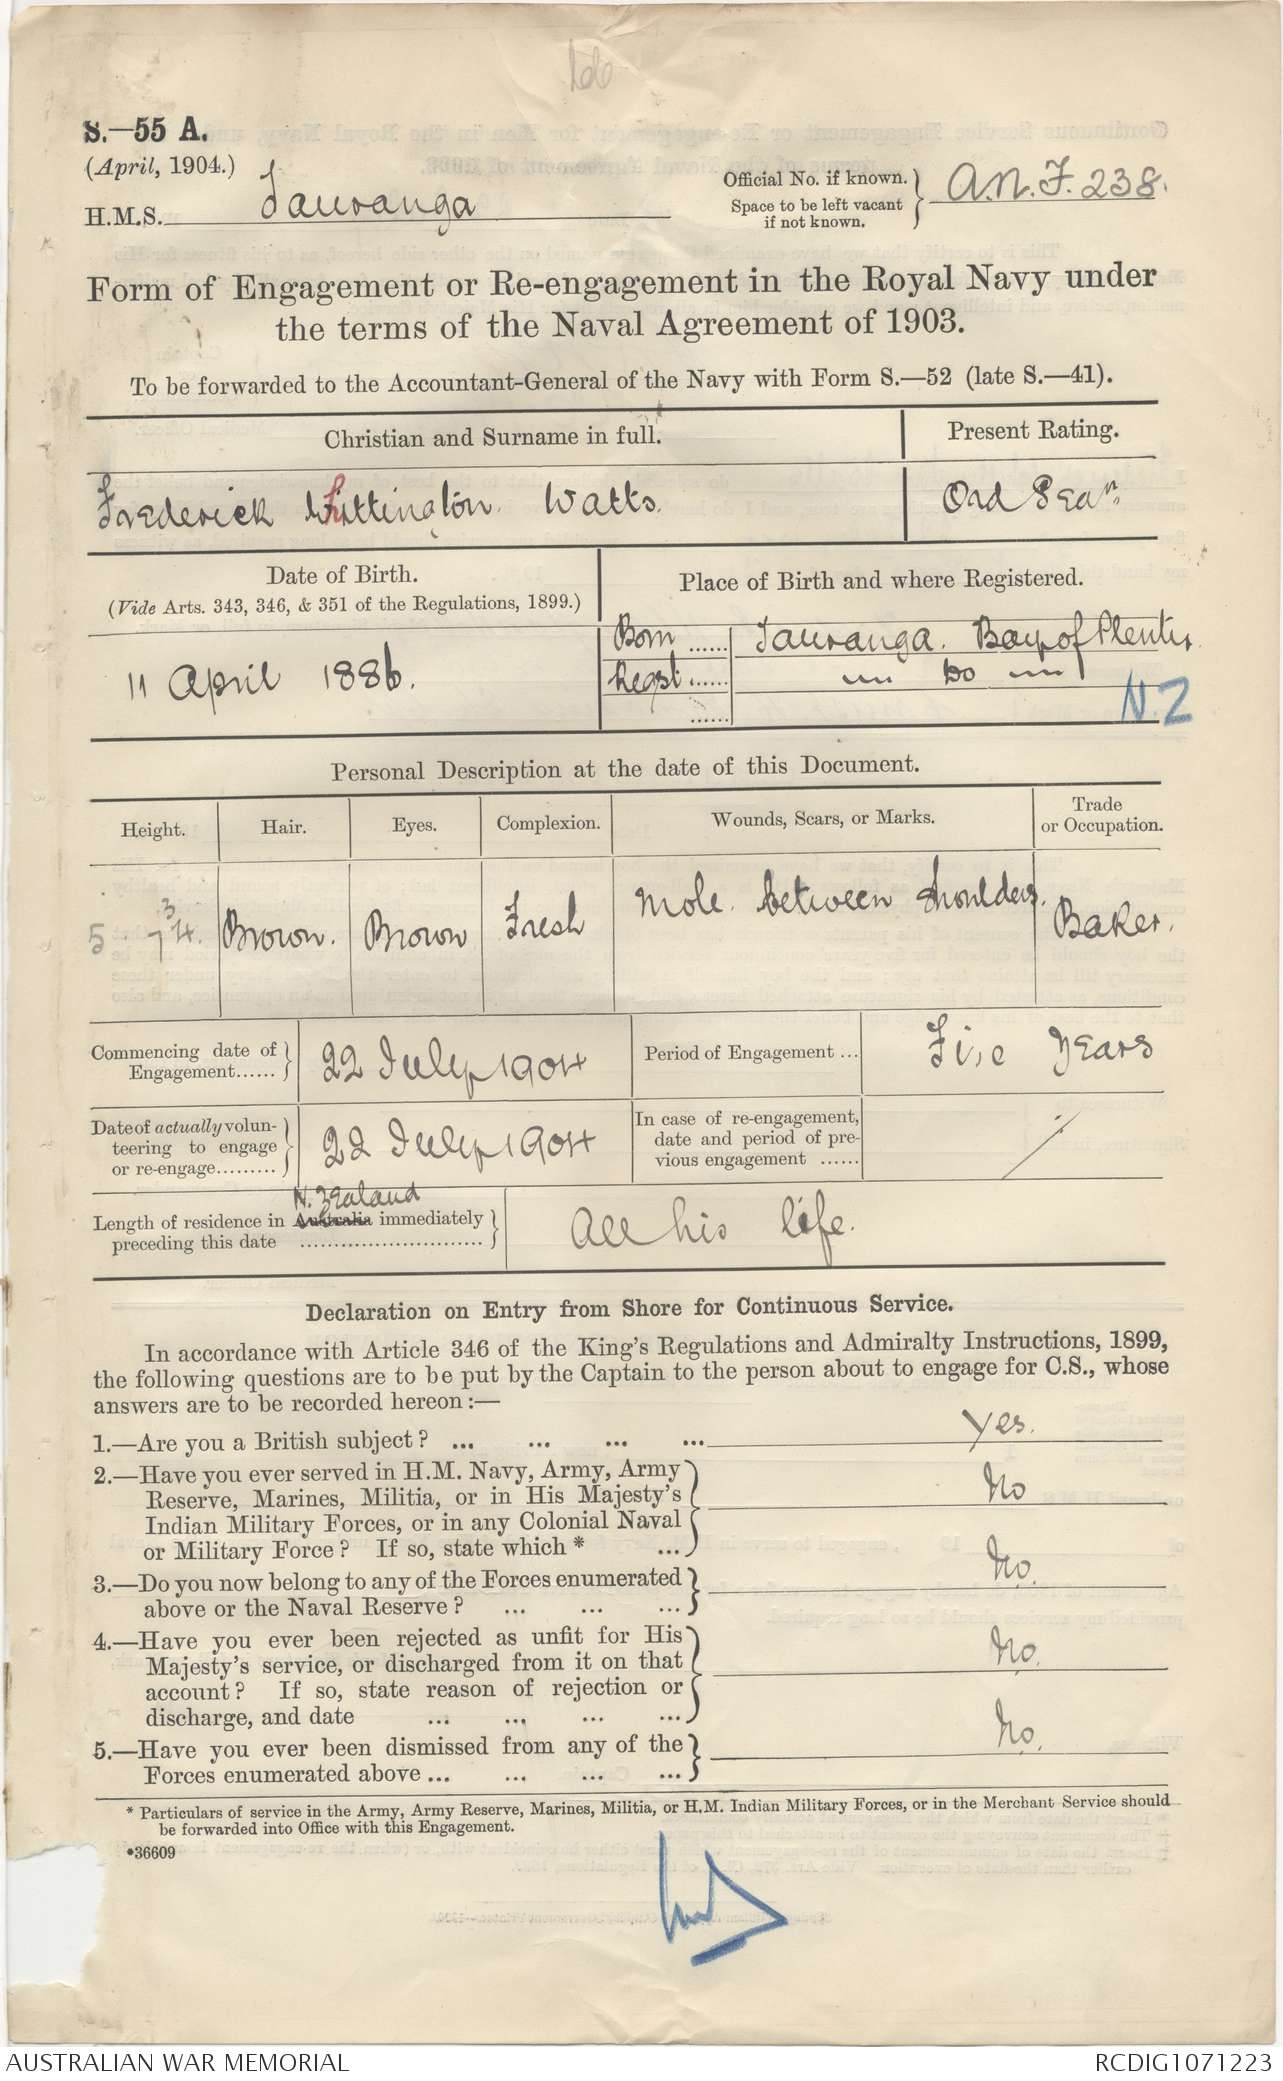 66
S.—55 A.
(April, 1904.)
H.M.S. Tauranga
Official No. if known.
Space to be left vacant
if not known.
A.N.F. 238.
Form of Engagement or Re-engagement in the Royal Navy under
the terms of the Naval Agreement of 1903.
To be forwarded to the Accountant-General of the Navy with Form S.—52 (late S.—41).
Christian and Surname in full.
Present Rating.
Frederick Whittington Watts.
Ord Sean.
Date of Birth.
(Vide Arts. 343, 346, & 351 of the Regulations, 1899.)
Place of Birth and where Registered.
11 April 1886.
Born ...... Tauranga. Bay of Plenty
Regst ...... " Do "
......
N.Z
Personal Description at the date of this Document.
Height.
Hair.
Eyes.
Complexion.
Wounds, Scars, or Marks.
Trade
or Occupation.
5. 7 3/4.
Brown.
Brown
Fresh
Mole. between shoulders.
Baker.
Commencing date of
Engagement......
22 July 1904
Period of Engagement ...
Five Years
Date of actually volun-
teering to engage
or re-engage.........
22 July 1904
In case of re-engagement,
date and period of pre-
vious engagement ......
/
N. Zealand
Length of residence in Australia immediately
preceding this date ............................
All his life.
Declaration on Entry from Shore for Continuous Service.
In accordance with Article 346 of the King's Regulations and Admiralty Instructions, 1899,
the following questions are to be put by the Captain to the person about to engage for C.S., whose
answers are to be recorded hereon:—
1.—Are you a British subject? ... ... ... ...
Yes.
2.—Have you ever served in H.M. Navy, Army, Army
Reserve, Marines, Militia, or in His Majesty's
Indian Military Forces, or in any Colonial Naval
or Military Force? If so, state which * ...
No
3.—Do you now belong to any of the Forces enumerated
above or the Naval Reserve? ... ... ...
No.
4.—Have you ever been rejected as unfit for His
Majesty's service, or discharged from it on that
account? If so, state reason of rejection or
discharge, and date ... ... ... ...
No.
5.—Have you ever been dismissed from any of the
Forces enumerated above ... ... ... ...
No.
* Particulars of service in the Army, Army Reserve, Marines, Militia, or H.M. Indian Military Forces, or in the Merchant Service should
be forwarded into Office with this Engagement.
*36609
AUSTRALIAN WAR MEMORIAL
RCDIG1071223